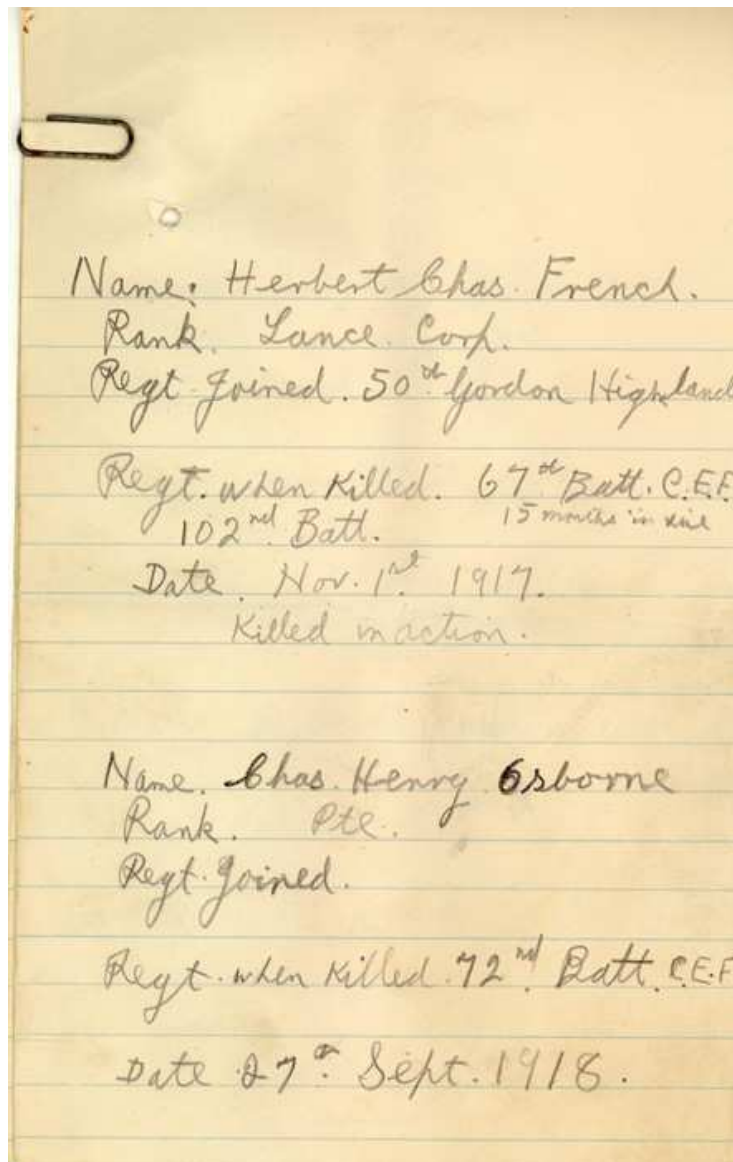 Name: Herbert Chas. French.
Rank. Lance. Corp.
Regt Joined. 50th Gordon Highland
Regt. when Killed. 67th Batt. C.E.F.
102nd Batt. 15 months in
Date. Nov. 1st 1917.
Killed in action.
Name. Chas. Henry Osborne
Rank. Pte.
Regt. Joined.
Regt. when Killed. 72nd Batt. C.E.F
Date 27th Sept. 1918.